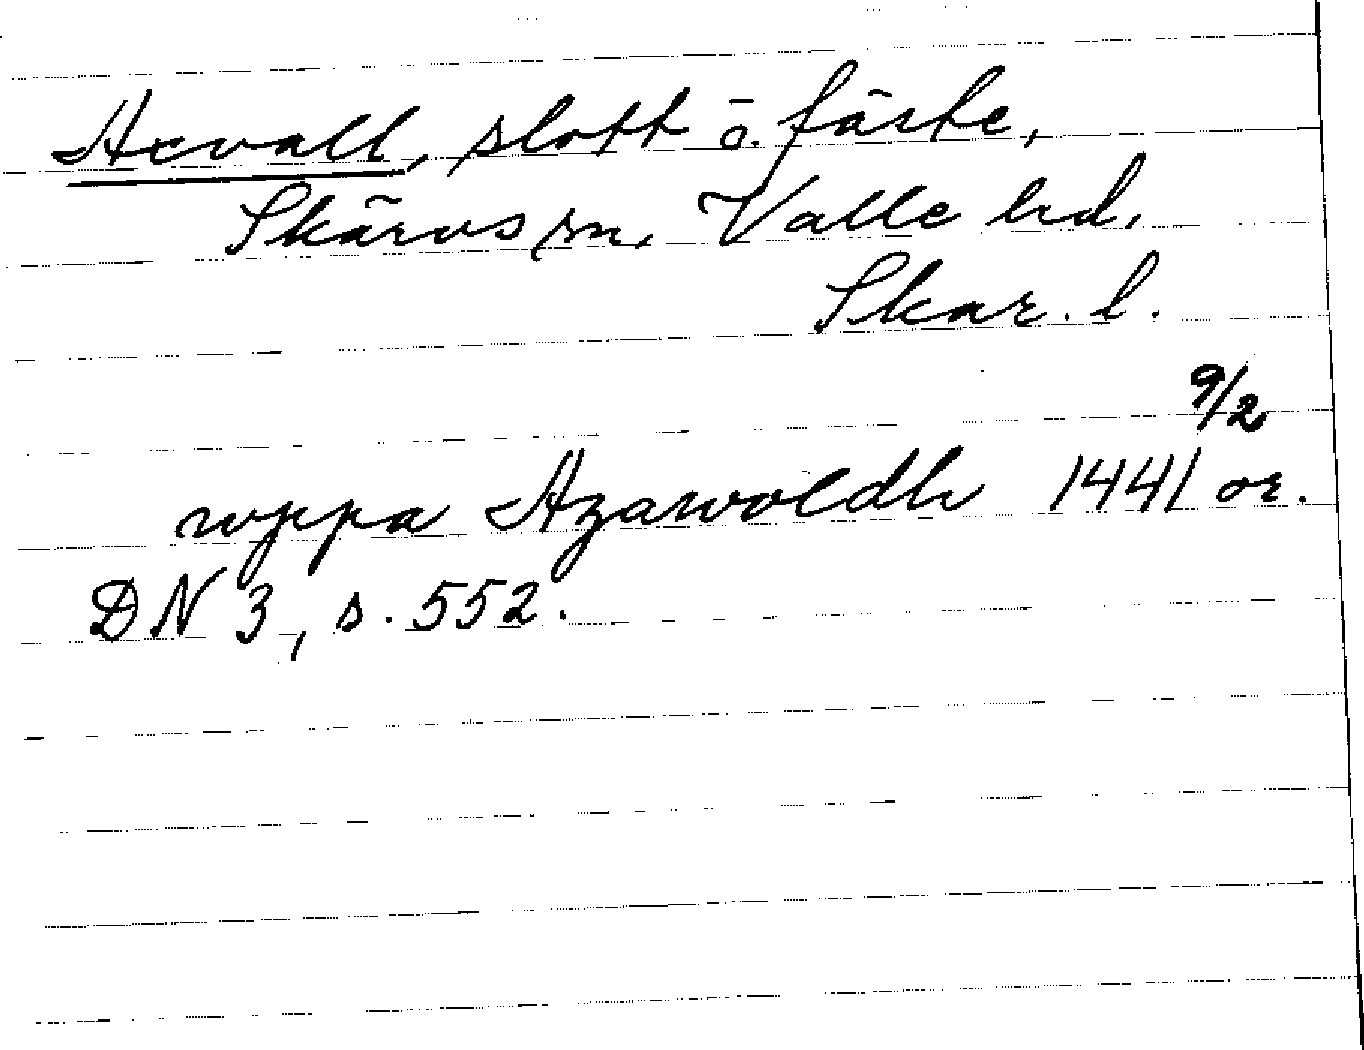 Axvall, slott o. fäste,
Skärvs sn. Valle hd.
Skar. l.
9/2
uppa Axawoldh 1441 or.
DN 3, s. 552.